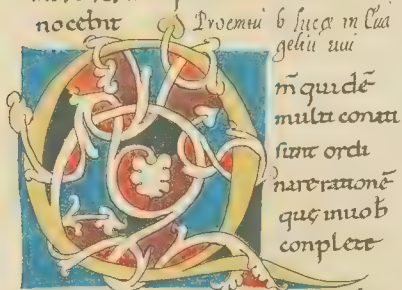 nocebit
Proemiu b lucę in Eua
gelii
m̄ quidē
multi conati
sunt ordi
nare rationē
quę in uob
conplete